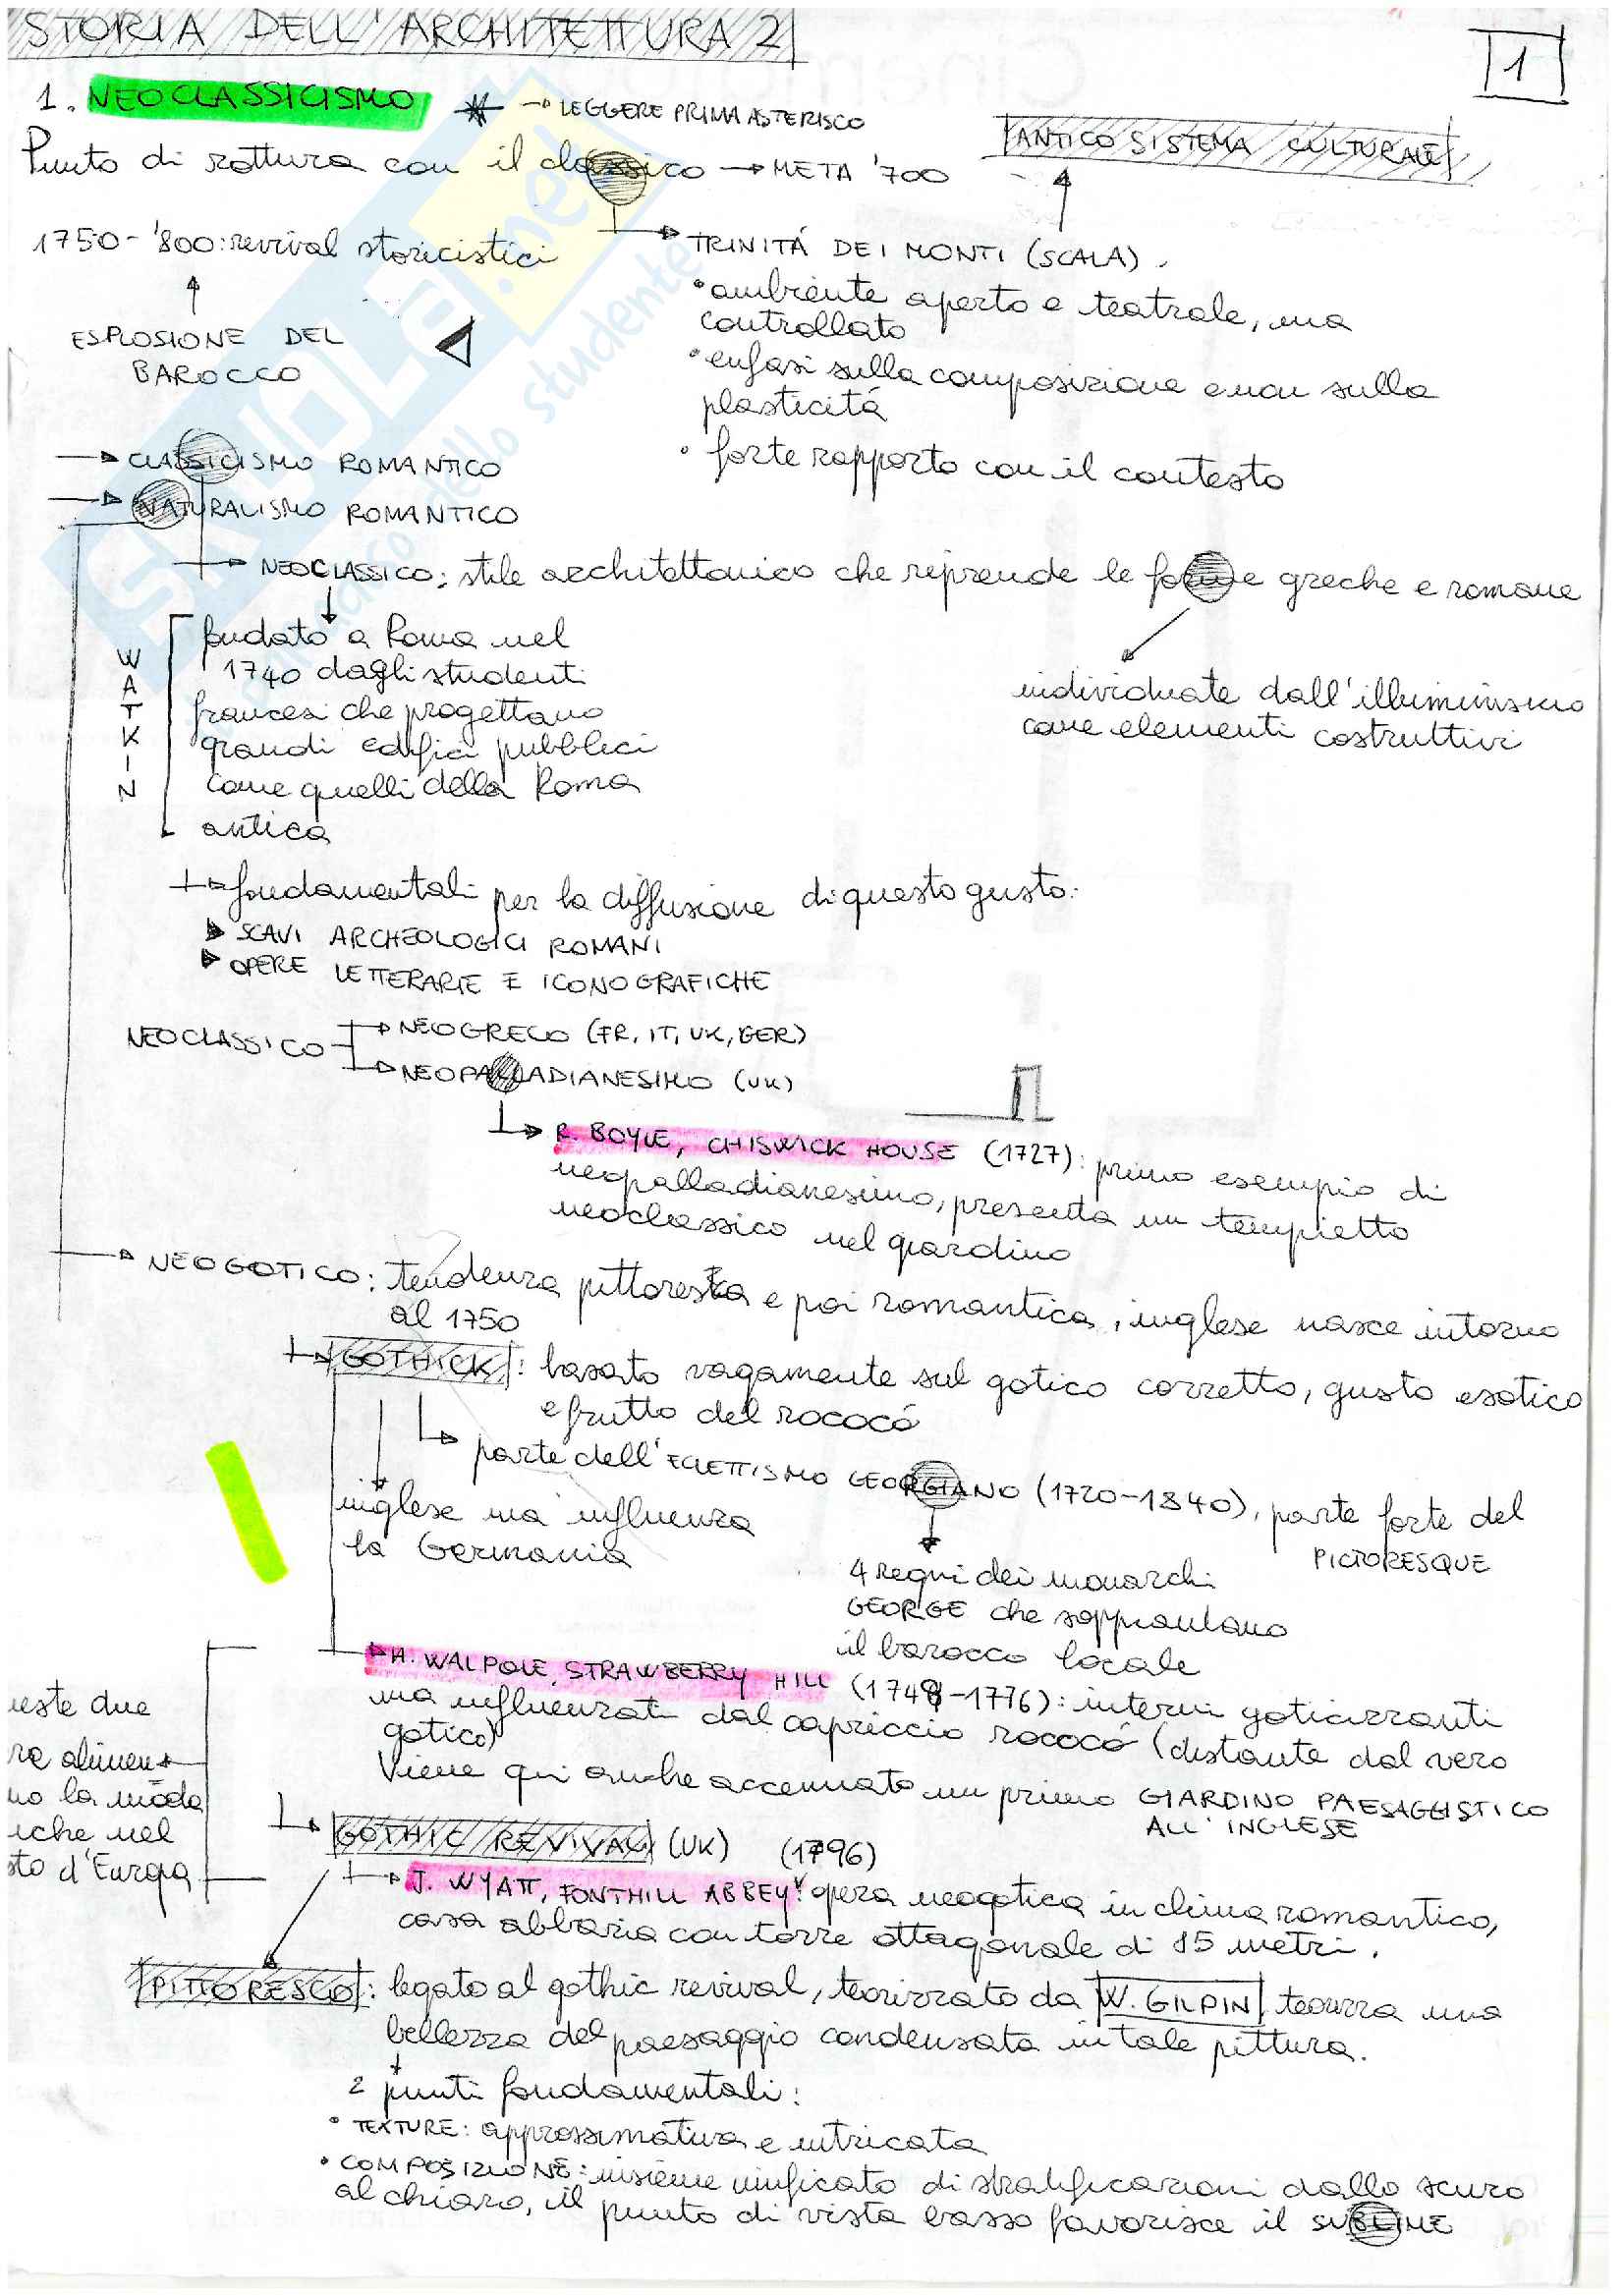 STORIA DELL'ARCHITETTURA 2
1
1. NEOCLASSICISMO * → LEGGERE PRIMA ASTERISCO
Punto di rottura con il classico → META '700
ANTICO SISTEMA CULTURALE
1750-'800: revival storicistici
ESPLOSIONE DEL
BAROCCO
TRINITÁ DEI MONTI (SCALA).
• ambiente aperto e teatrale, ma
controllato
• enfasi sulla composizione e non sulla
plasticitá
• forte rapporto con il contesto
→ CLASSICISMO ROMANTICO
→ NATURALISMO ROMANTICO
→ NEOCLASSICO: stile architettonico che riprende le forme greche e romane
individuate dall'illuminismo
come elementi costruttivi
WATKIN
fondato a Roma nel
1740 dagli studenti
francesi che progettano
grandi edifici pubblici
come quelli della Roma
antica
→ fondamentali per la diffusione di questo gusto:
▶ SCAVI ARCHEOLOGICI ROMANI
▶ OPERE LETTERARIE E ICONOGRAFICHE
NEOCLASSICO
→ NEOGRECO (FR, IT, UK, GER)
→ NEOPALLADIANESIMO (UK)
→ R. BOYLE, CHISWICK HOUSE (1727): primo esempio di
neopalladianesimo, presenta un tempietto
neoclassico nel giardino
→ NEOGOTICO: tendenza pittoreska e poi romantica, inglese nasce intorno
al 1750
→ GOTHICK: basato vagamente sul gotico corretto, gusto esotico
e frutto del rococó
→ parte dell'ECLETTISMO GEORGIANO (1720-1840), parte forte del
PICTORESQUE
inglese ma influenza
la Germania
4 regni dei monarchi
GEORGE che soppiantano
il barocco locale
→ H. WALPOLE, STRAWBERRY HILL (1749-1776): interni goticizzanti
ma influenzati dal capriccio rococó (distante dal vero
gotico)
Viene qui anche accennato un primo GIARDINO PAESAGGISTICO
ALL'INGLESE
ueste due
re alimen
no la moda
nche nel
sto d'Europa
→ GOTHIC REVIVAL (UK) (1796)
→ J. WYATT, FONTHILL ABBEY: opera neogotica in clima romantico,
casa abbazia con torre ottagonale di 85 metri.
PITTORESCO: legato al gothic revival, teorizzato da W. GILPIN, teorizza una
bellezza del paesaggio condensata in tale pittura.
2 punti fondamentali:
• TEXTURE: approssimativa e intricata
• COMPOSIZIONE: insieme unificato di stratificazioni dallo scuro
al chiaro, il punto di vista basso favorisce il SUBLIME
SKUOLA.net
dello studente